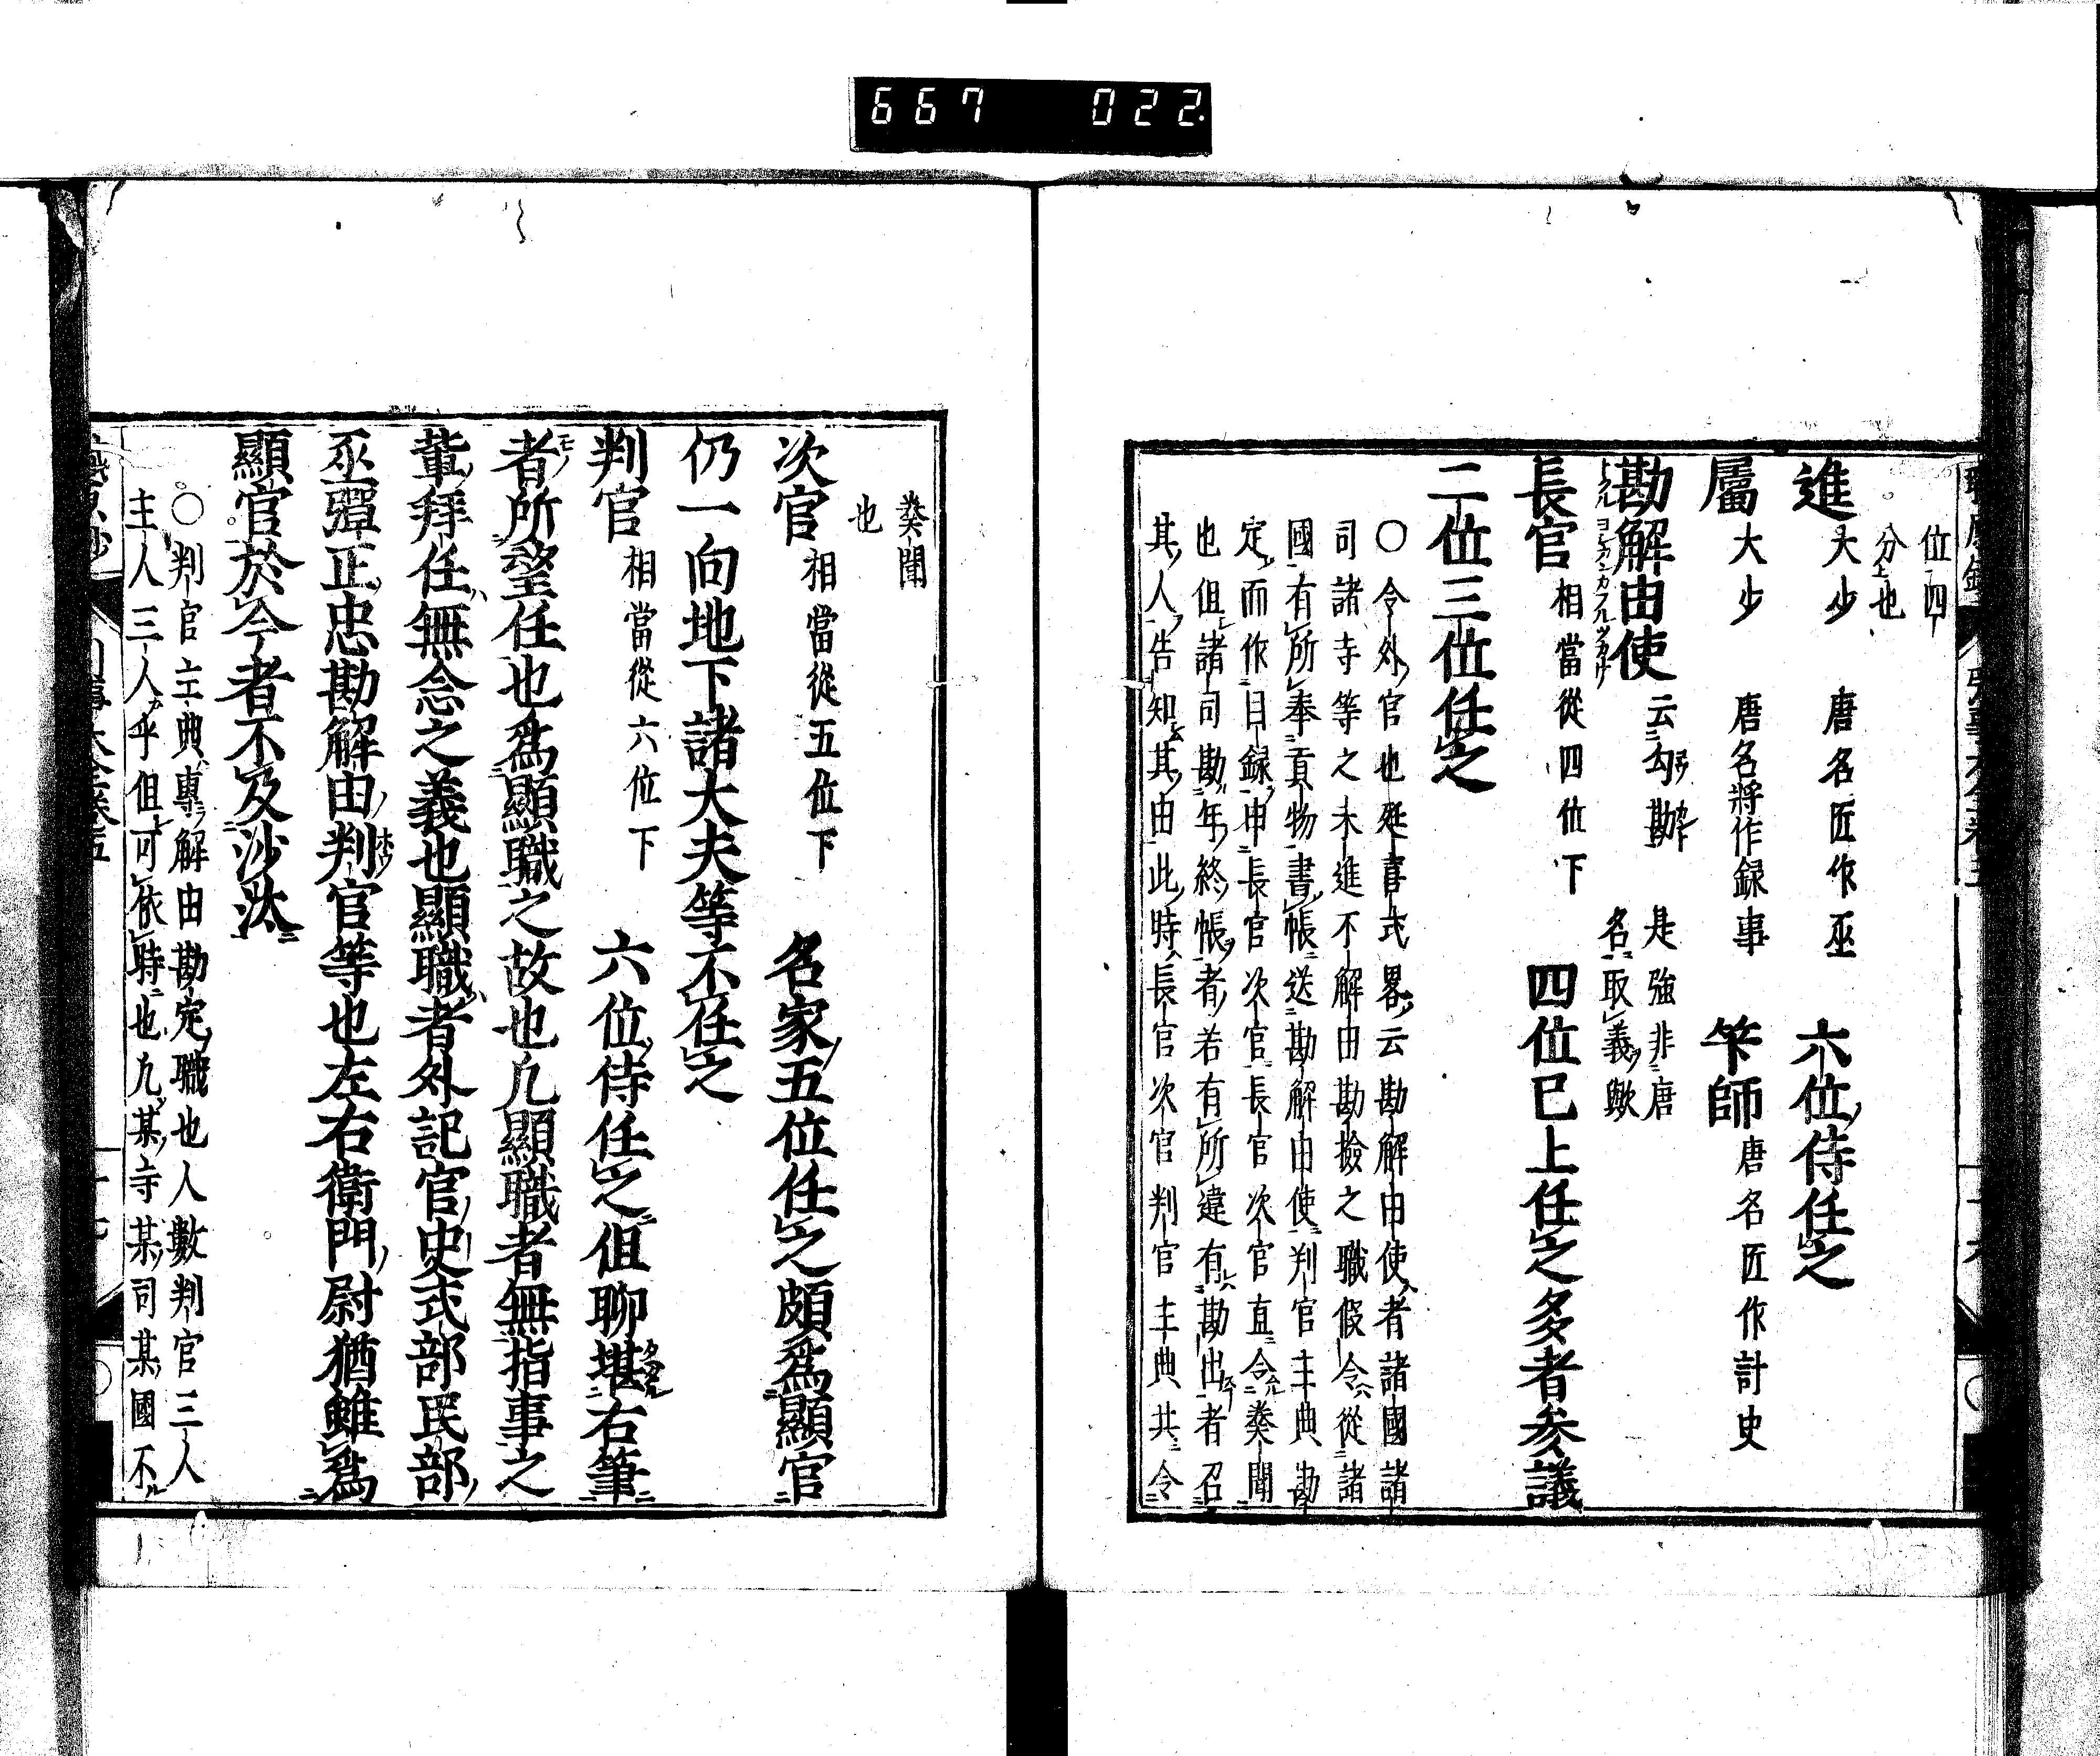 667 022
位四
分也
進 大少 唐名匠作丞 六位侍任之
屬 大少 唐名將作録事 筭師 唐名匠作計史
勘解由使 云勾勘 是強非唐
名取義歟
長官 相當從四位下 四位已上任之多者参議
二位三位任之
○令外官也延喜式畧云勘解由使者諸國諸
司諸寺等之未進不解由勘撿之職假令從諸
國有所奉貢物書帳送勘解由使判官主典勘
定而作目録申長官次官長官次官直令奏聞
也但諸司勘年終帳者若有所違有勘出者召
其人告知其由此時長官次官判官主典共令
奏聞
也
次官 相當從五位下 名家五位任之頗為顯官
仍一向地下諸大夫等不任之
判官 相當從六位下 六位侍任之但聊堪右筆
者所望任也為顯職之故也凡顯職者無指事之
輩拜任無念之義也顯職者外記官史式部民部
丞彈正忠勘解由判官等也左右衛門尉猶雖為
顯官於今者不及沙汰
○判官主典專解由勘定職也人數判官三人
主人三人乎但可依時也凡某寺某司某國不